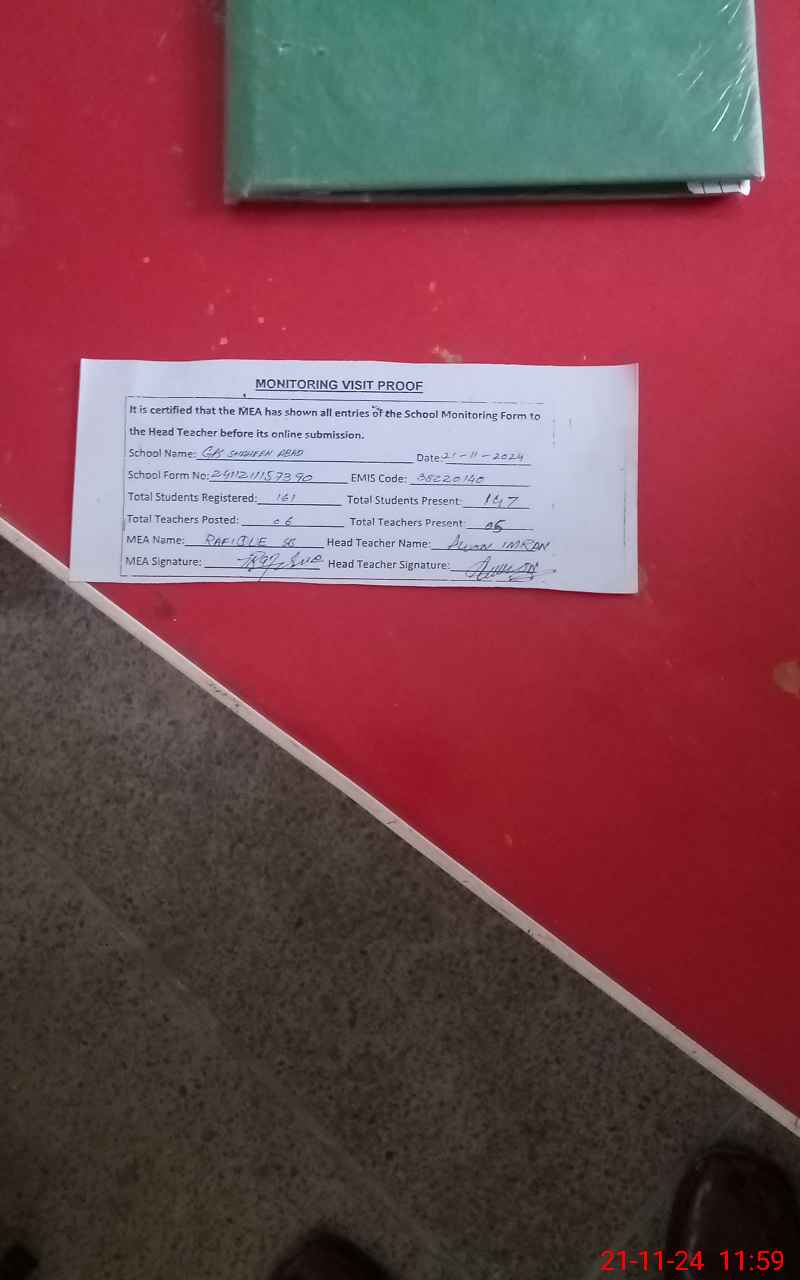 MONITORING VISIT PROOF
It is certified that the MEA has shown all entries of the School Monitoring Form to
the Head Teacher before its online submission.
School Name: GPS SHAHEEN ABAD Date: 21-11-2024
School Form No: EMIS Code: 38220140
Total Students Registered: 161 Total Students Present: 147
Total Teachers Posted: 06 Total Teachers Present: 05
MEA Name: Head Teacher Name: IMRAN
MEA Signature: Head Teacher Signature:
21-11-24 11:59